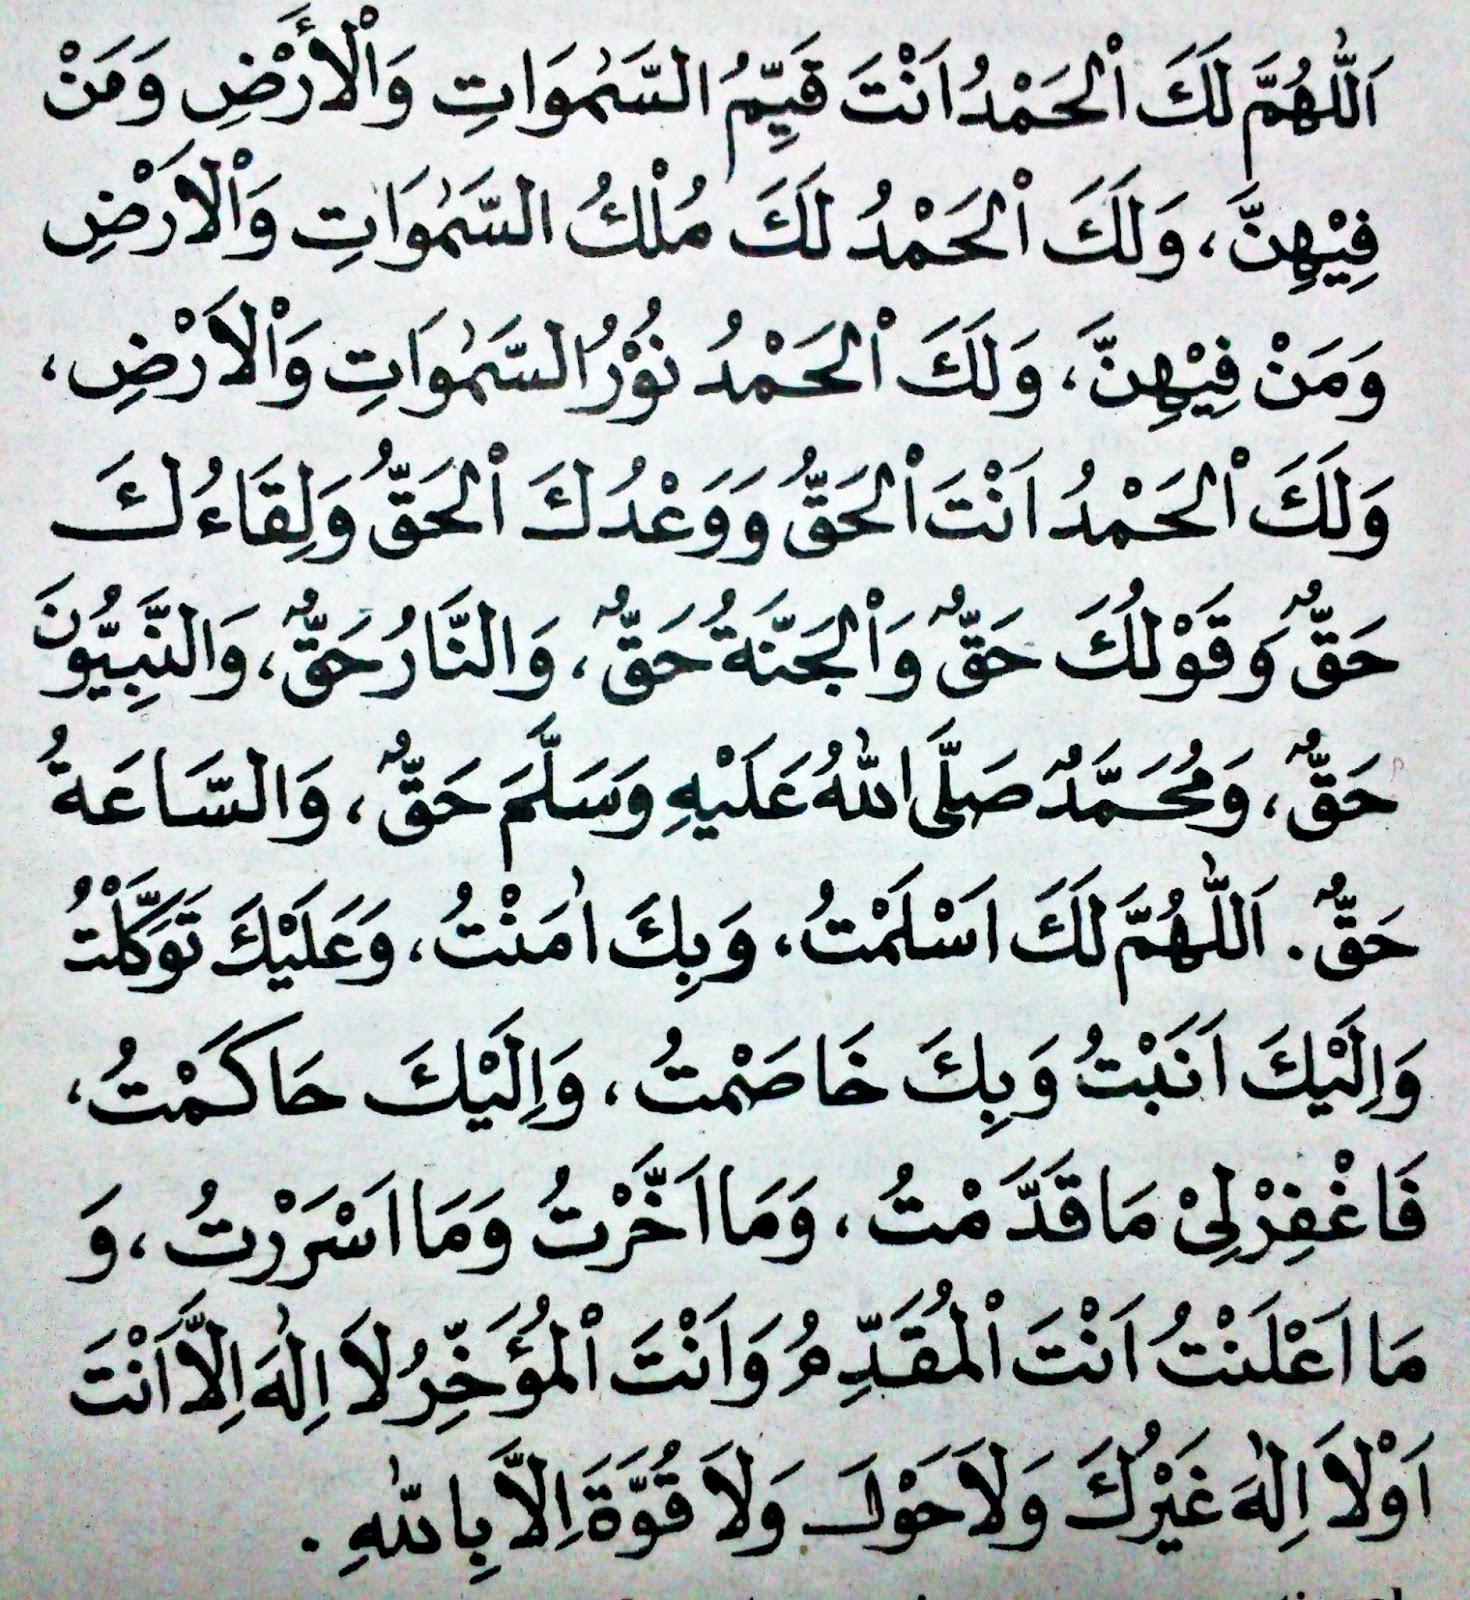 اَللّٰهُمَّ لَكَ اْلحَمْدُ اَنْتَ قَيِّمُ السَّمٰوَاتِ وَاْلأَرْضِ وَمَنْ
فِيْهِنَّ، وَلَكَ اْلحَمْدُ لَكَ مُلْكُ السَّمٰوَاتِ وَاْلاَرْضِ
وَمَنْ فِيْهِنَّ، وَلَكَ اْلحَمْدُ نُوْرُ السَّمٰوَاتِ وَاْلاَرْضِ،
وَلَكَ اْلحَمْدُ اَنْتَ اْلحَقُّ وَوَعْدُكَ اْلحَقُّ وَلِقَاءُكَ
حَقٌّ وَقَوْلُكَ حَقٌّ وَاْلجَنَّةُ حَقٌّ، وَالنَّارُ حَقٌّ، وَالنَّبِيُّوْنَ
حَقٌّ، وَمُحَمَّدٌ صَلَّى اللهُ عَلَيْهِ وَسَلَّمَ حَقٌّ، وَالسَّاعَةُ
حَقٌّ. اَللّٰهُمَّ لَكَ اَسْلَمْتُ، وَبِكَ اٰمَنْتُ، وَعَلَيْكَ تَوَكَّلْتُ
وَاِلَيْكَ اَنَبْتُ وَبِكَ خَاصَمْتُ، وَاِلَيْكَ حَاكَمْتُ،
فَاغْفِرْلِيْ مَاقَدَّمْتُ، وَمَا اَخَّرْتُ وَمَا اَسْرَرْتُ، وَ
مَا اَعْلَنْتُ اَنْتَ اْلمُقَدِّمُ وَاَنْتَ اْلمُؤَخِّرُ لاَ اِلٰهَ اِلاَّ اَنْتَ
اَوْلاَ اِلٰهَ غَيْرُكَ وَلاَحَوْلَ وَلاَ قُوَّةَ اِلاَّ بِاللهِ.